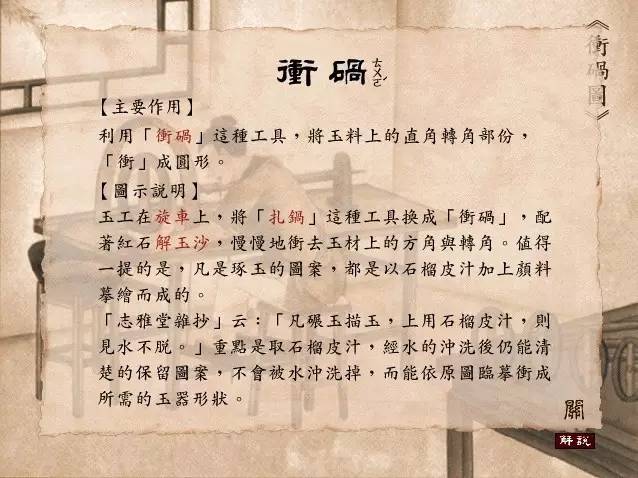 衝碢ㄊㄨㄛˊ
《衝碢圖》
【主要作用】
利用「衝碢」這種工具，將玉料上的直角轉角部份，
「衝」成圓形。
【圖示說明】
玉工在旋車上，將「扎鍋」這種工具換成「衝碢」，配
著紅石解玉沙，慢慢地衝去玉材上的方角與轉角。值得
一提的是，凡是琢玉的圖案，都是以石榴皮汁加上顏料
摹繪而成的。
「志雅堂雜抄」云：「凡碾玉描玉，上用石榴皮汁，則
見水不脫。」重點是取石榴皮汁，經水的沖洗後仍能清
楚的保留圖案，不會被水沖洗掉，而能依原圖臨摹衝成
所需的玉器形狀。
關
解說